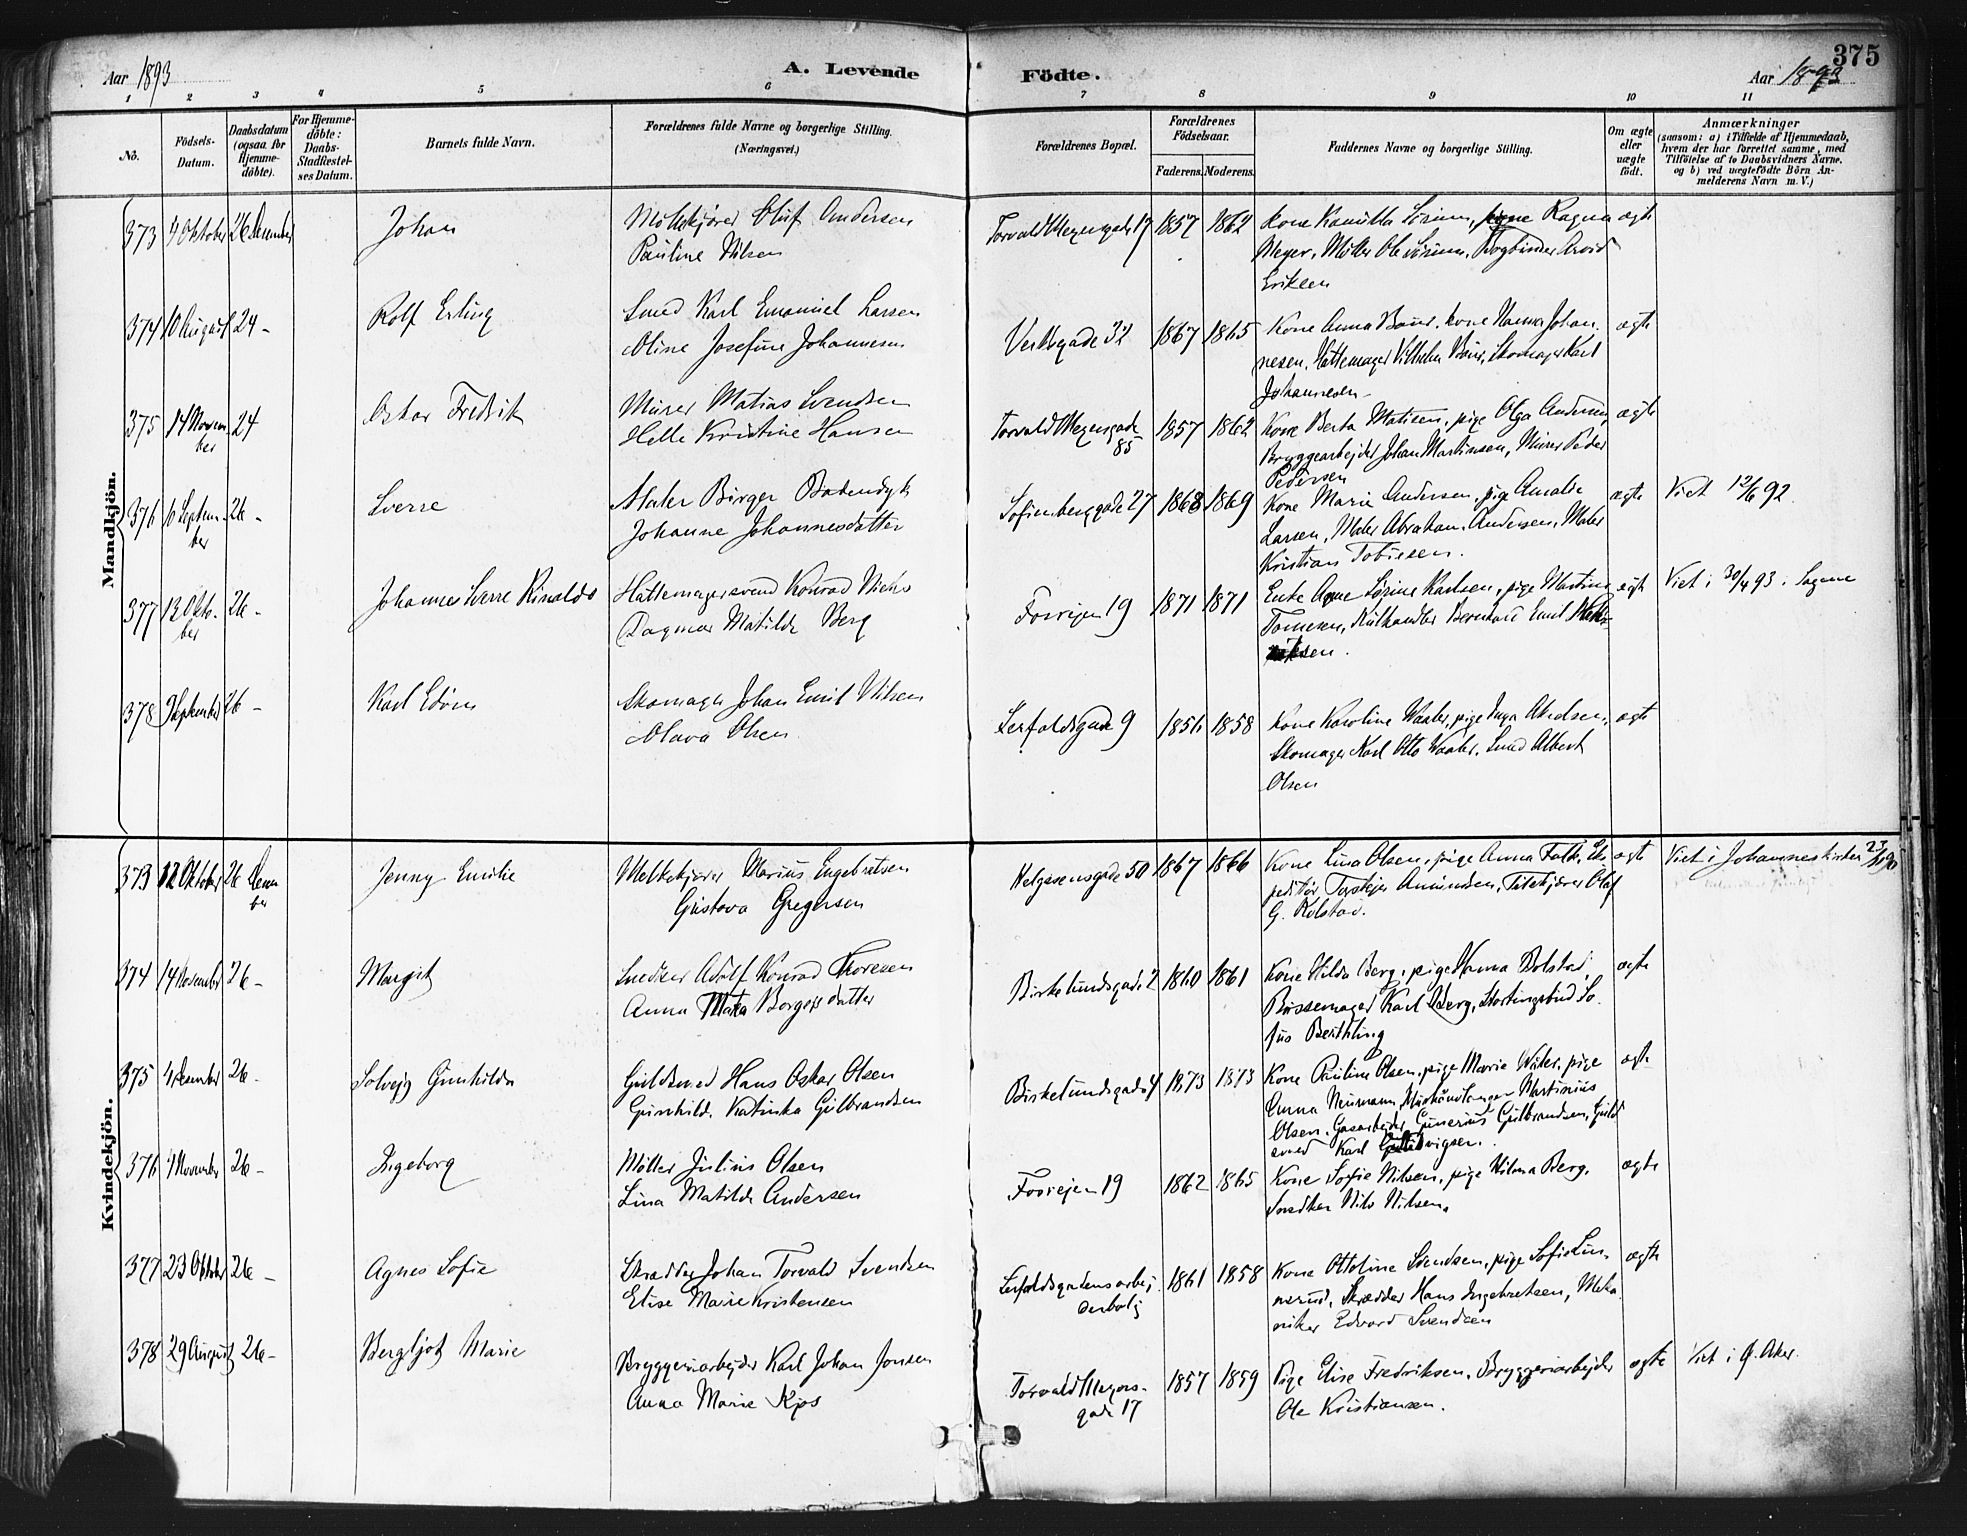 375
Aar 1893
A. Levende
Födte.
Aar 1893
1 2 3 4 5 6 7 8 9 10 11
No.
Födsels-
Datum.
Daabsdatum
(ogsaa for
Hjemme-
döbte).
For Hjemme-
döbte:
Daabs-
Stadfæstel-
ses Datum.
Barnets fulde Navn.
Forældrenes fulde Navne og borgerlige Stilling.
(Næringsvei.)
Forældrenes Bopæl.
Forældrenes
Födselsaar.
Faderens. Moderens.
Faddernes Navne og borgerlige Stilling.
Om ægte
eller
uægte
födt.
Anmærkninger
(saasom: a) i Tilfælde af Hjemmedaab,
hvem der har forrettet samme, med
Tilföielse af to Daabsvidners Navne.
og b) ved uægtefödte Börn An-
melderens Navn m. V.)
Mandkjön.
373 4 Oktober 26 Desember Johan
Olaf Andersen
Pauline Nilsen
Torvald Meyersgade 17 1857 1862
Kone Kamilla Sörum, pige Ragna
Meyer, Möller Ole Sörum, Bogbinder Arvid
Eriksen
ægte
374 10 August 24 - Rolf Erling
Smed Karl Emanuel Larsen
Oline Josefine Johannesen
Verksgade 32 1867 1865
Kone Anna Baur, kone Hanna Johan-
nesen, Hattemager Vilhelm Baur, Skomager Karl
Johannesen
ægte
375 14 Novem-
ber 24 Oskar Fredrik
Murer Matias Svendsen
Helle Kristine Hansen
Torvald Meyersgade
85 1857 1862
Kone Berta Matisen, pige Olga Andersen,
Bryggearbejder Johan Martinsen, Murer Peder
Pedersen
ægte
376 10 Septem-
ber 26 - Sverre
Maler Birger Bodendyk
Johanne Johannesdatter
Sofienberggade 27 1868 1869
Kone Marie Andersen, pige Amalie
Larsen, Maler Abraham Andersen, Maler
Kristian Tobiesen.
ægte Viet 12/6 92.
377 12 Okto-
ber 26 - Johannes Sverre Rinaldo
Hattemagersvend Konrad
Dagmar Matilde Berg
Fossvejen 19 1871 1871
Enke Sörine Karlsen, pige Martine
Tomesen, Kulhandler Bernhard Emil
ægte Viet i 30/4 93 i Sagene
378 September 26 - Karl Edvin
Skomager Johan Emil Nilsen
Olava Olsen
Seilduksgade 9 1856 1858
Kone Karoline Waaler, pige Inga
Skomager Karl Otto Waaler, Smed Albert
Olsen
ægte
Kvindekjön.
373 12 Oktober 26 Desem-
ber Jenny Emilie
Melkekjører Marius Engebretsen
Gustava Gregersen
Helgesensgade 50 1867 1866
Kone Lina Olsen, pige Anna Falk, Eks-
peditør Torstejn Amundsen, Olaf
G. Kolstad.
ægte Viet i Johanneskirken
374 14 November 26 - Margit
Snedker Adolf Konrad Thoresen
Anna Borgersdatter
Birkelundsgade 2 1860 1861
Kone Hilda Berg, pige Hanna Bolstad,
Børssemager Karl Berg, Stortingsbud So-
fus Berthling
ægte
375 4 Desember 26 - Solvejg Gunhilda
Guldsmed Hans Oskar Olsen
Gunhild Katinka Gulbrandsen
Birkelundsgade 4 1873 1873
Kone Pauline Olsen, pige Marie Wiker, pige
Anna Neumann, Martinius
Olsen, Gasarbejder Gunerius Gulbrandsen, Guld-
smed Karl
ægte
376 4 November 26 - Ingeborg
Möller Julius Olsen
Lina Matilde Andersen
Fossvejen 19 1862 1865
Kone Sofie Nilsen, pige Hilma Berg,
Snedker Nils Nilsen.
ægte
377 23 Oktober 26 - Agnes Sofie
Skrædder Johan Torvald Svendsen
Elise Marie Kristensen
Seilduksgadens arbej-
derbolig 1861 1858
Kone Ottoline Svendsen, pige Sofie Lin-
nerud, Skrædder Hans Ingebretsen, Meka-
niker Edvard Svendsen
ægte
378 29 August 26 - Bergljot Marie
Bryggeriarbejder Karl Johan Jonsen
Anna Marie Kjos
Torvald Meyers-
gade 17 1857 1859
Pige Elise Fredriksen, Bryggeriarbejder
Ole Kristiansen.
ægte Viet i Ø. Aker.